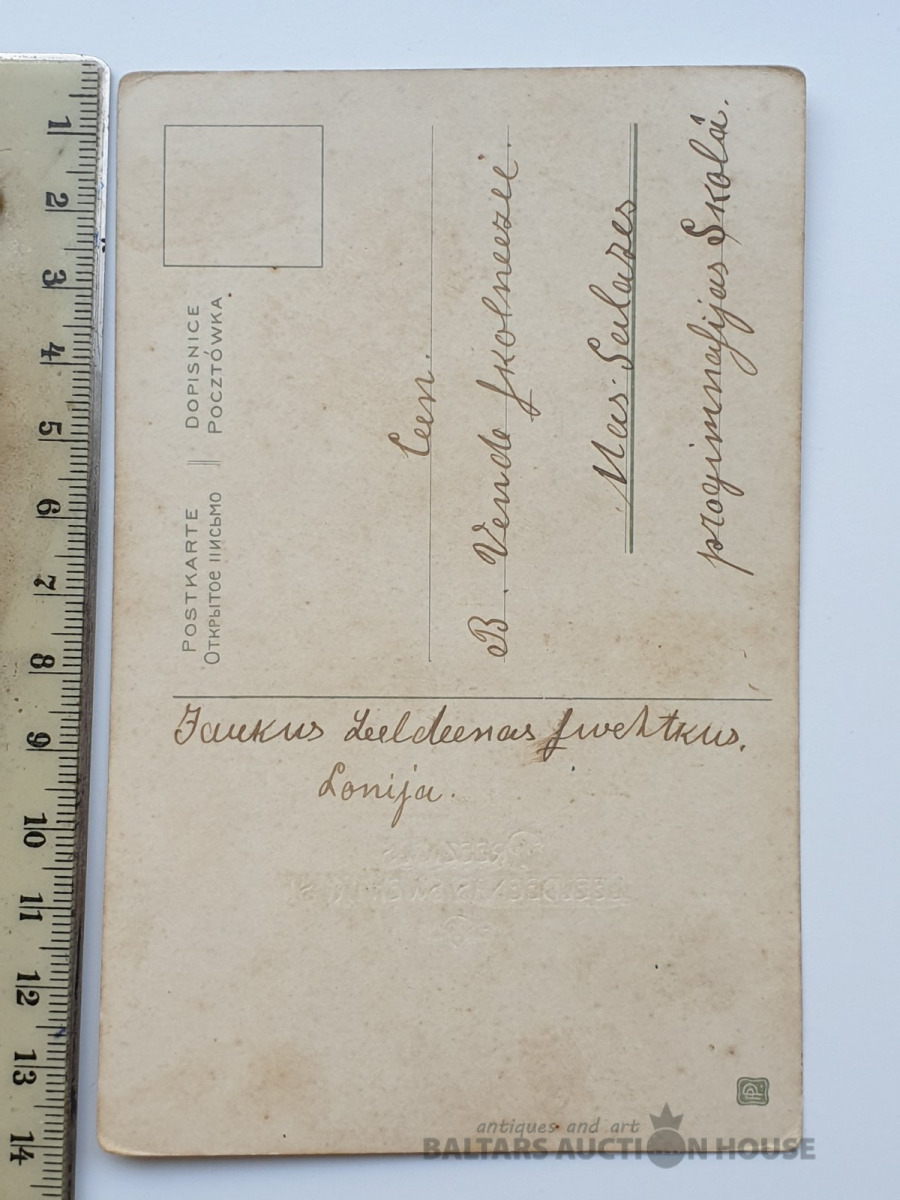 POSTKARTE || DOPISNICE
ОТКРЫТОЕ ПИСЬМО POCZTÓWKA.
Cen.
B. Vende skolneezei.
Mas-Salazes
progimnasijas Skolā.
Jaukus Leeldeenas swehtkus.
Lonija.
PREEZIGAS
LEELDEENAS SWEHTKUS!
1
2
3
4
5
6
7
8
9
10
11
12
13
14
antiques and art
BALTARS AUCTION HOUSE